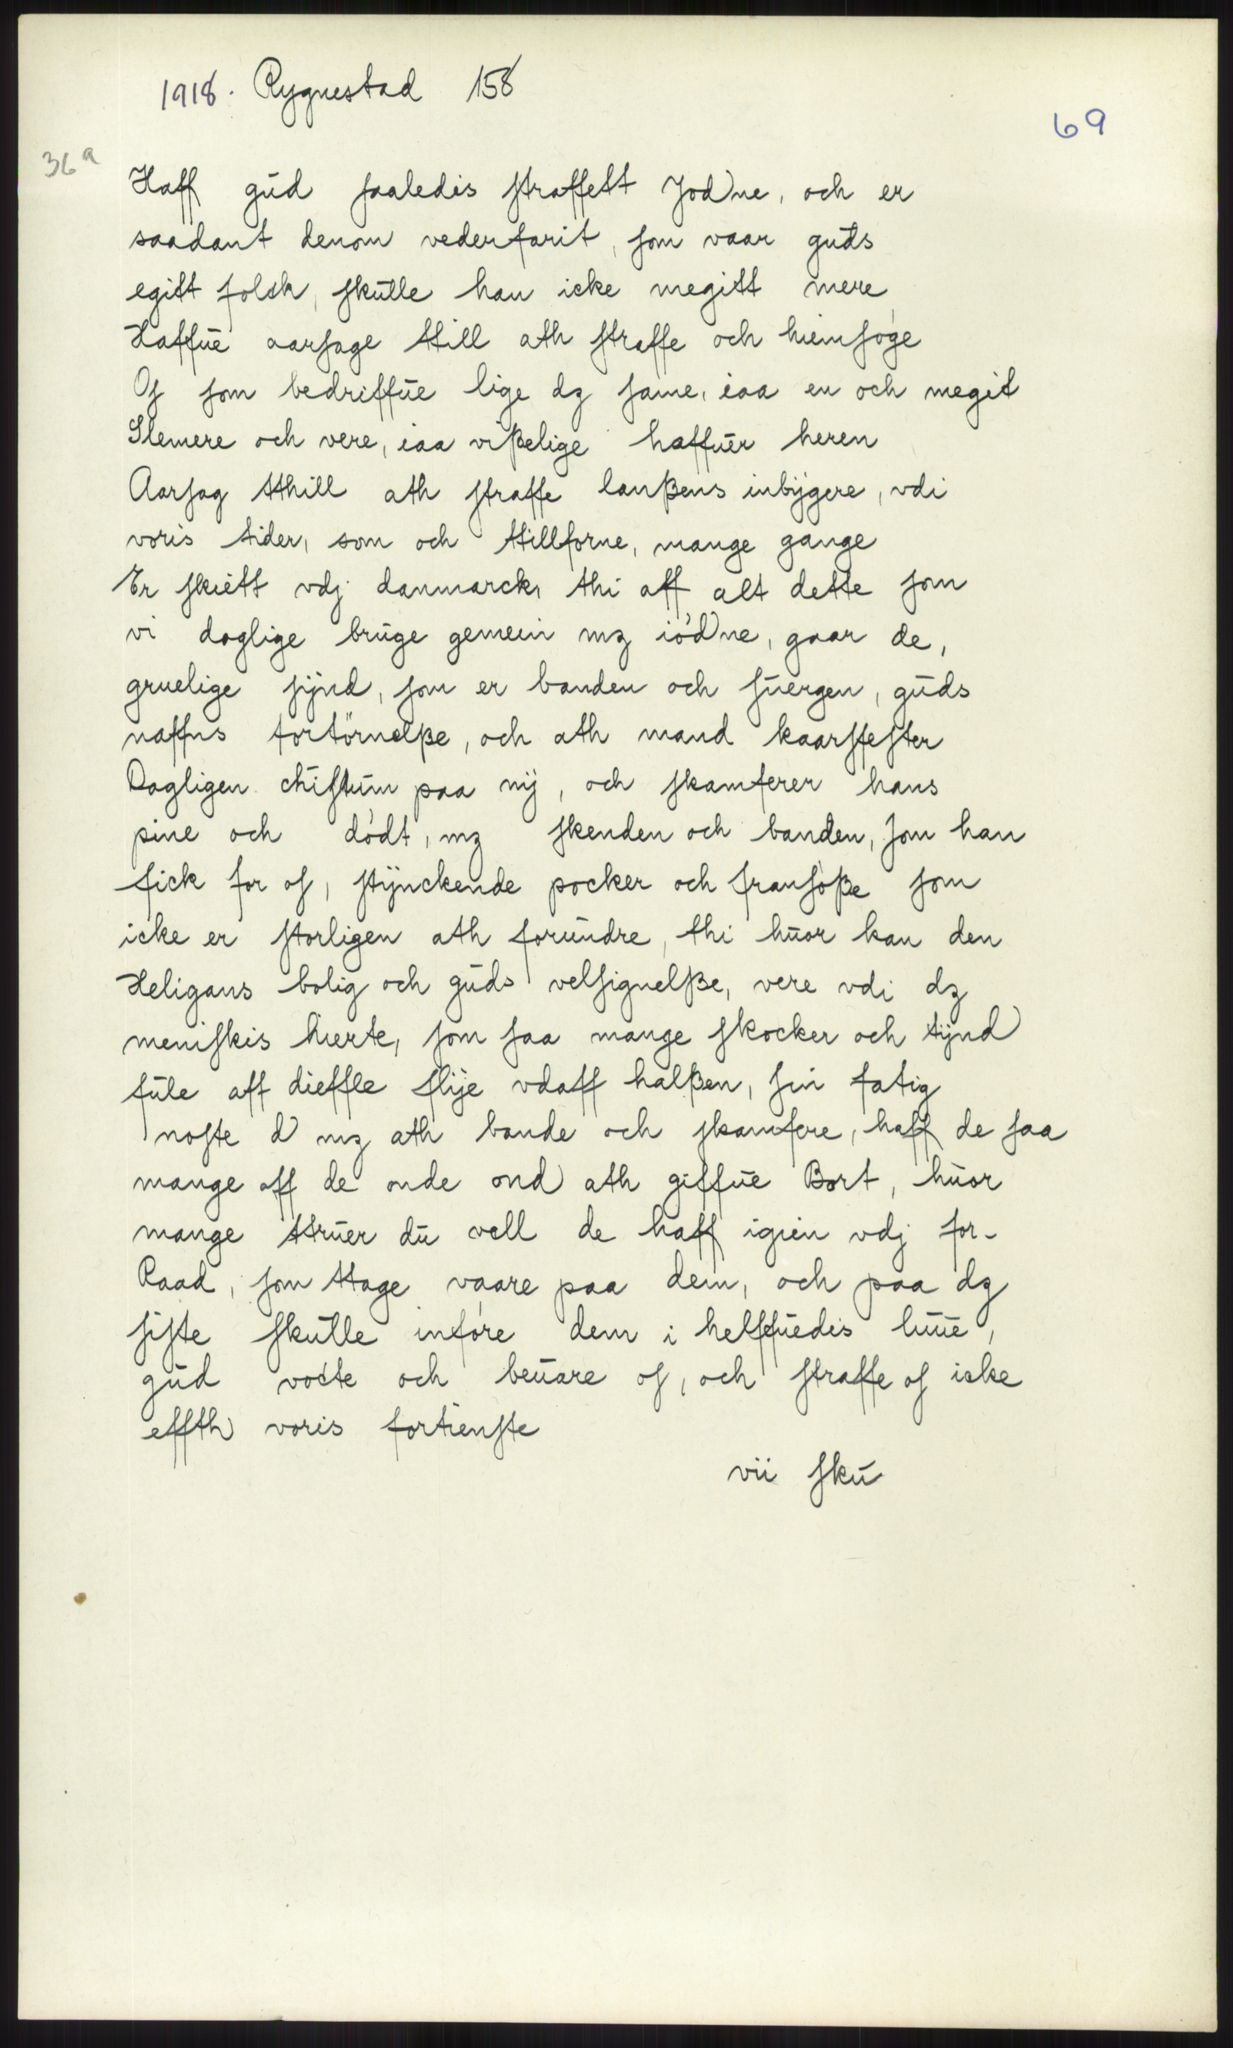 1918. Rygnestad 158
69
36a
Haff gūd ſaaledis ſtraffett Jodne, och er
saadant denom vederfarit, ſom vaar gūds
egitt folck, ſkūlle han icke megitt mere
Haffūe aarſage till ath ſtraffe och hiemſøge
Oſ ſom bedriffūe lige dz ſame, iaa en och megit
Slemere och vere, iaa vißelige haffūer heren
Aarſag thill ath ſtraffe lanßens inbÿgere, vdi
voris tider, som och tillforne, mange gange
Er ſkiett vdj danmarck, thi aff alt dette ſom
vi daglige brūge gemein mz iódne, gaar de,
gruelige ſÿnd, ſom er banden och ſūergen, gūds
naffns fortörnelße, och ath mand kaarſfeſter
Dagligen chiſtūm paa nÿ, och ſkamferer hans
pine och dódt, mz ſkenden och banden, ſom han
fick for oſ, ſtÿnckende pocker och franſóße ſom
icke er ſtorligen ath forūndre, thi hūor kan den
Heligans bolig och gūds velſignelße, vere vdi dz
meniſkis hierte, ſom ſaa mange ſkocker och tÿnd
fūle aff dieffle flÿe vdaff halßen, ſin fatig
noſte d mz ath bande och ſkamfere, haff de ſaa
mange aff de onde ond ath giffūe Bort, hūor
mange ttrūer dū vell de haff igien vdj for-
Raad, ſom ttage vaare paa dem, och paa dz
ſiſte ſkūlle infóre dem i helffūedis lūūe,
gūd vocte och beūare oſ, och ſtraffe oſ icke
effth voris fortienſte
vii ſkū